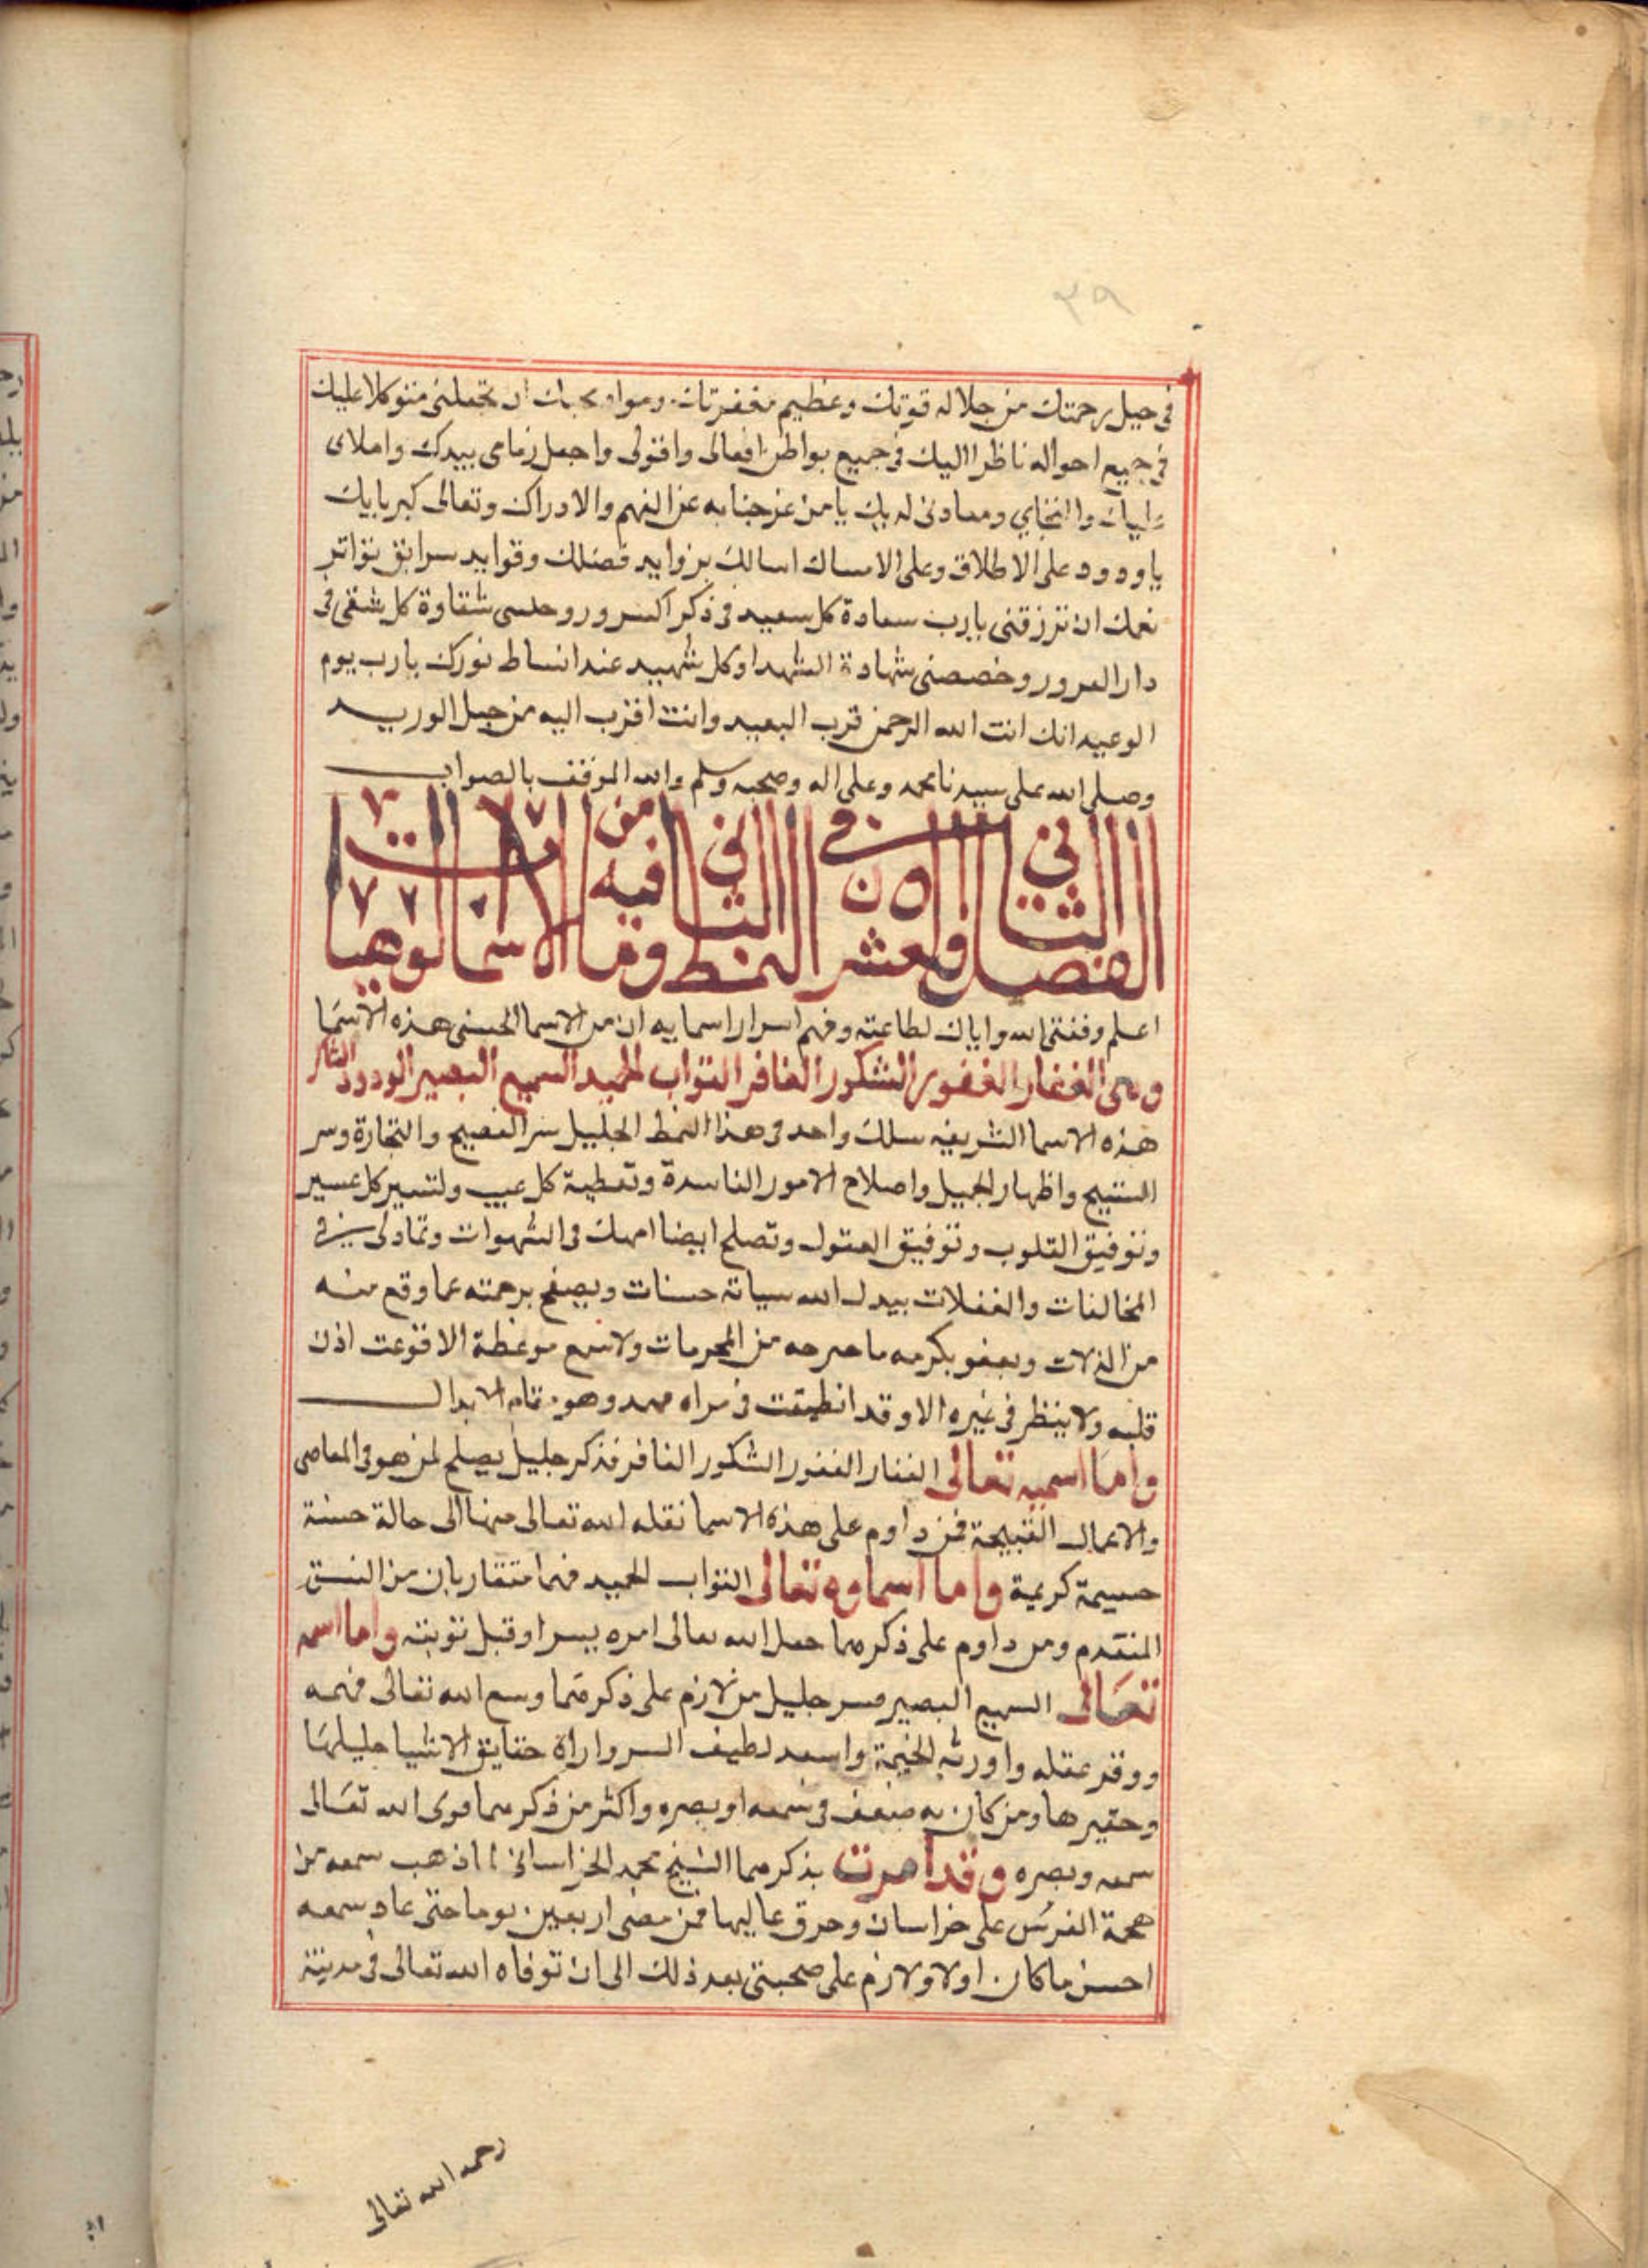 ٣٩
في جميل رحمتك من جلاله قوتك وعظيم مغفرتك ان تجعلني متوكلا عليك
في جميع احواله ناظرا اليك في جميع بواطن افعالى واقولى واجعل زمامى بيدك واملاى
ومعادنى لديك يا من عز جنابه عن الفهم والادراك وتعالى كبريايك
ياودود على الاطلاق وعلى الامساك اسالك بزوايد فضلك وفوايد سرابق تواتر
نعمك ان ترزقنى يارب سعادة كل سعيد فى ذكر السرور شقاوة كل شقى فى
دار الغرور وخصصنى شهادة الشهدا وكل شهيد عند انساط نورك يارب يوم
الوعيد انك انت الله الرحمن قرب البعيد وانت اقرب اليه من حبل الوريد
وصلى الله على سيدنا محمد وعلى اله وصحبه وسلم والله الموفق بالصواب
الفصل الثاني والعشرون في النمط الثاني وما فيه من الاسما
اعلم وفقنى الله واياك لطاعته وفهم اسرار اسمايه ان من الاسما الحسنى هذه الاسما
وهى الغفار الغفور الشكور الغافر التواب الحميد السميع البصير الودود الشاكر
هذه الاسما الشريفه سلك واحد فى هذا النمط الجليل سر الفصيح والتجارة وسر
القبيح واظهار الجميل واصلاح الامور الفاسدة وتغطية كل عيب ولتسير كل عسير
وتوفيق القلوب وتوفيق العقول وتصلح ايضا امهك فى الشهوات وتمادى فى
المخالفات والغفلات بيدل الله سياته حسنات ويصفح برحمته عما وقع منه
من الزلات ويعفو بكرمه ما صرحه من المحرمات ولا سمع موعظة الا قوعت اذن
قلبه ولا ينظر فى غيره الا وقد انطبقت فى مراه وهو مقام الابدال
واما اسميه تعالى الغفار الغفور الشكور الغافر فذكر جليل يصلح لمن هو فى المعاصى
والاعمال القبيحة فمن داوم على هذه الاسما نقله الله تعالى منها الى حالة حسنة
جسيمة كريمة واما اسماوه تعالى التواب الحميد فهما متقاربان من النسق
المتقدم ومن داوم على ذكرهما جعل الله تعالى امره يسرا وقبل توبته واما اسمه
تعالى السميع البصير فسر جليل من لازم على ذكرهما وسع الله تعالى فهمه
ووفر عقله واورثه واسعد لطيف السر واراه حقايق الاشيا جليلها
وحقيرها ومن كان به ضعف فى سمعه او بصره واكثر من ذكرهما قوى الله تعالى
سمعه وبصره وقد امرت بذكرهما الشيخ محمد الخراسانى لما ذهب سمعه من
هجمة الفرس على خراسان وحرق عاليها فمن مضى اربعين يوما حتى عاد سمعه
احسن ما كان اولا ولازم على صحبتى بعد ذلك الى ان توفاه الله تعالى فى مدينة
رحمه الله تعالى